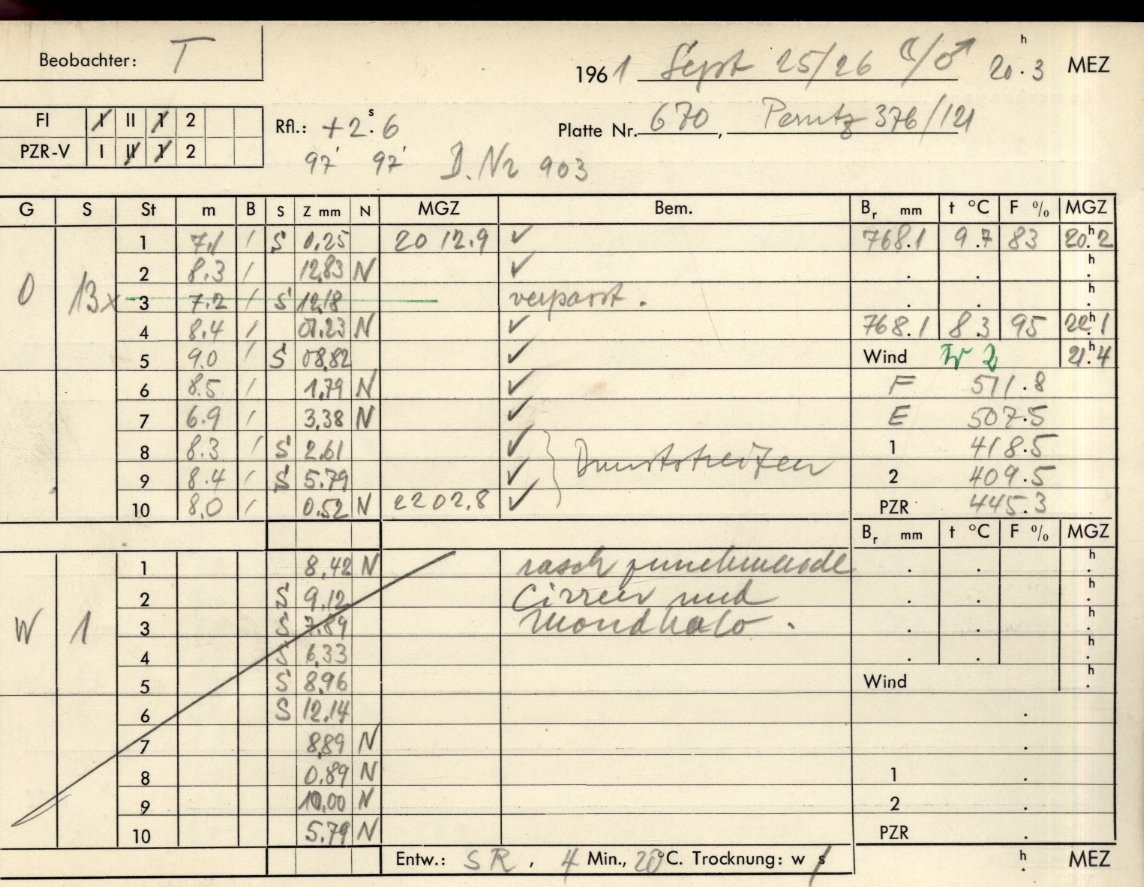 Beobachter: T
1961 Sept 25/26 20h.3 MEZ
FI I II 1 2
PZR-V I II 1 2
Rfl.: +2s.6
Platte Nr. 670, Perutz 376/121
97' 97' D.Nr 903
G S St m B S Z mm N MGZ Bem. Br mm t °C F % MGZ
O 13x
1 7.1 / S 0.25 20 12.9 ✓ 768.1 9.7 83 20h.2
2 8.3 / 12.83 N ✓ . . h.
3 7.2 / S 12.18 verpasst. . . h.
4 8.4 / 01.23 N ✓ 768.1 8.3 95 22h.1
5 9.0 S 08.82 ✓ Wind W 2 21h.4
6 8.5 / 1.79 N ✓ F 511.8
7 6.9 / 3.38 N ✓ E 507.5
8 8.3 / S 2.61 ✓ Dunststreifen 1 418.5
9 8.4 / S 5.79 ✓ 2 409.5
10 8.0 / 0.52 N 22 02.8 ✓ PZR 445.3
Br mm t °C F % MGZ
W 1
1 8.42 N rasch zunehmende . . h.
2 S 9.12 Cirren und . . h.
3 S 7.89 Mondhalo. . . h.
4 S 6.33 . . h.
5 S 8.96 Wind h.
6 S 12.14 .
7 8.89 N .
8 0.89 N 1 .
9 10.00 N 2 .
10 5.79 N PZR .
Entw.: SR, 4 Min., 20°C. Trocknung: w s h. MEZ